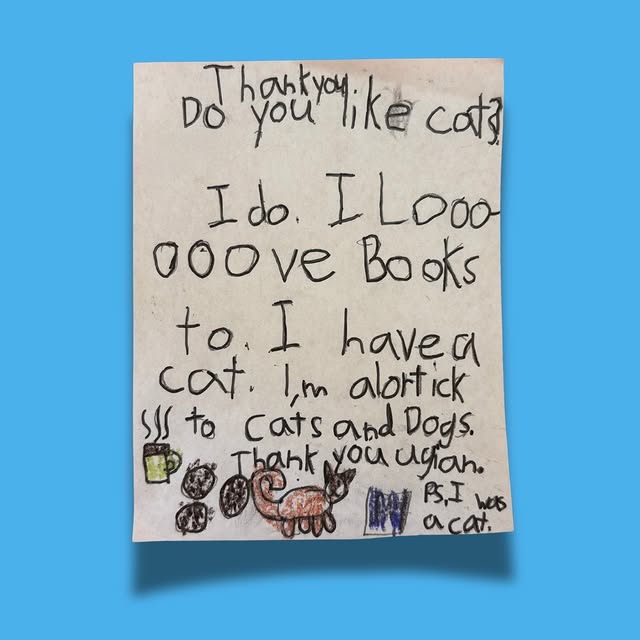 Thankyou
Do you like cats?
I do. I Looo
ooove Books
to. I have a
cat. I,m alortick
to cats and Dogs.
Thank you ugian.
PS, I was
a cat.